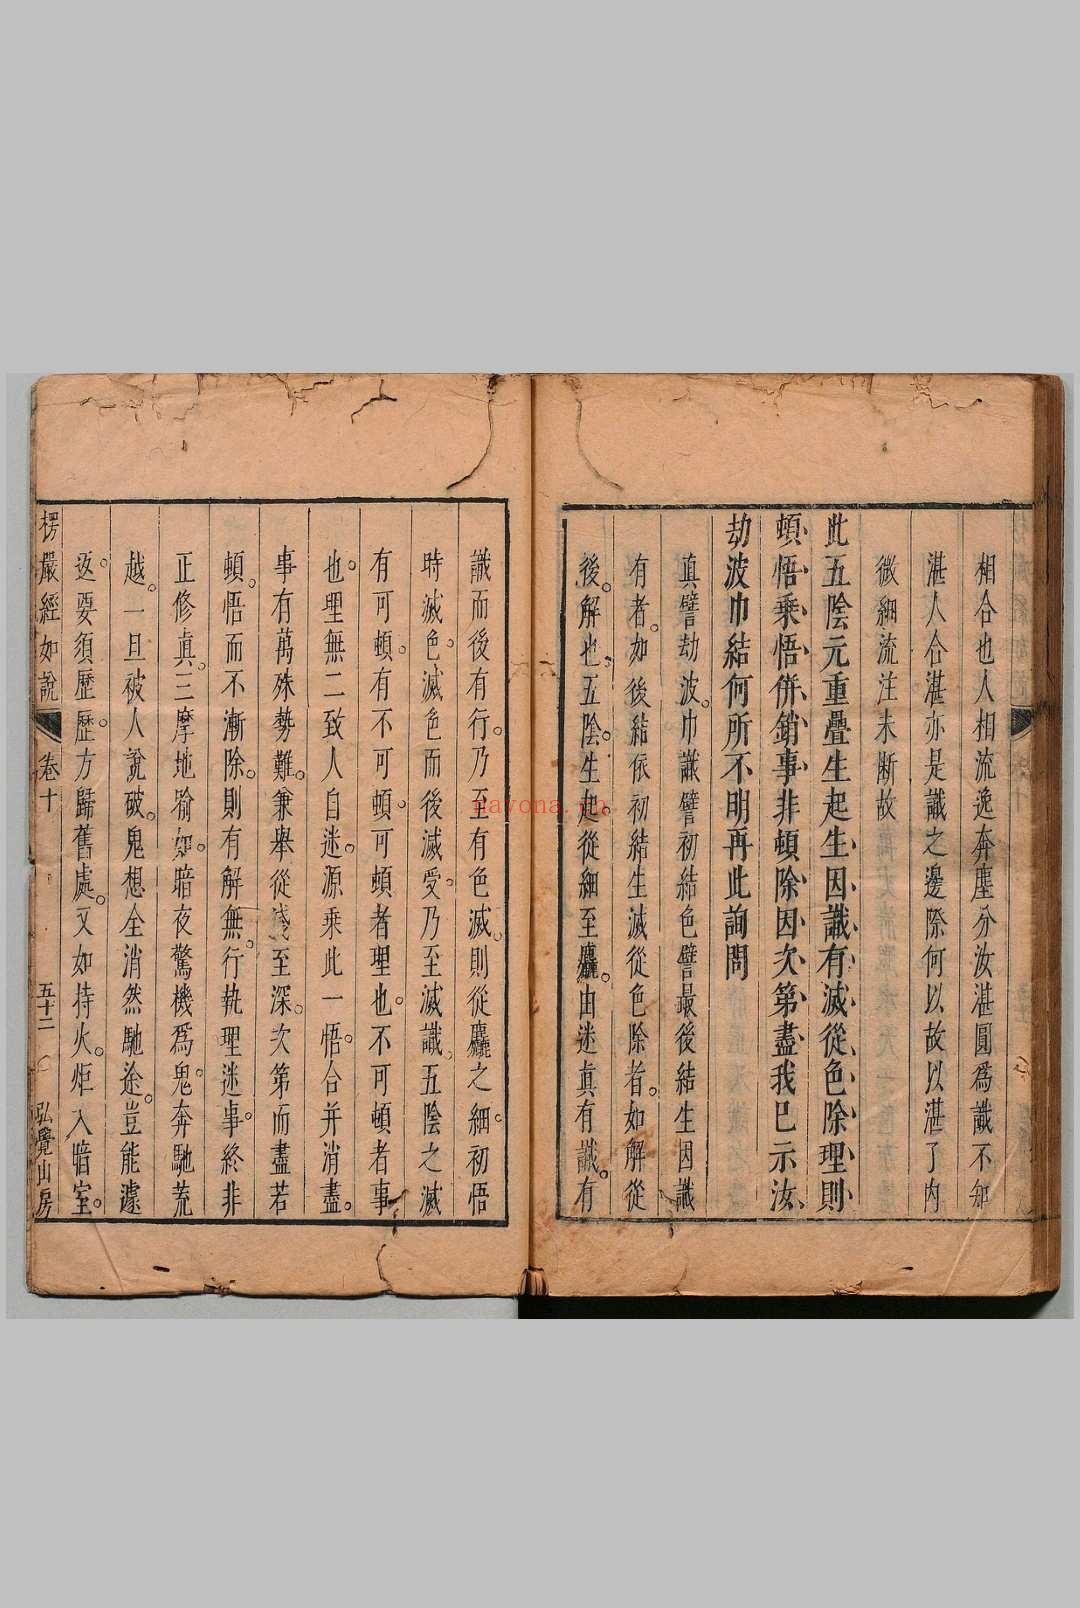 相合也人相流逸奔塵分汝湛圓爲識不知
湛人合湛亦是識之邊際何以故以湛了內
微細流注未斷故
此五陰元重疊生起生因識有滅從色除理則
頓悟乘悟併銷事非頓除因次第盡我已示汝
劫波巾結何所不明再此詢問
眞譬劫波巾識譬初結色譬最後結生因識
有者如後結依初結生滅從色除者如解從
後解也五陰生起從細至麤由迷眞有識有
識而後有行乃至有色滅則從麤之細初悟
時滅色滅色而後滅受乃至滅識五陰之滅
有可頓有不可頓可頓者理也不可頓者事
也理無二致人自迷源乘此一悟合并消盡
事有萬殊勢難兼舉從淺至深次第而盡若
頓悟而不漸除則有解無行執理迷事終非
正修眞三摩地喻如暗夜驚機爲鬼奔馳荒
越一旦被人說破鬼想全消然馳途豈能遽
返要須歷歷方歸舊處又如持火炬入暗室
楞嚴經如說 卷十 五十二 弘覺山房
nayona.cn